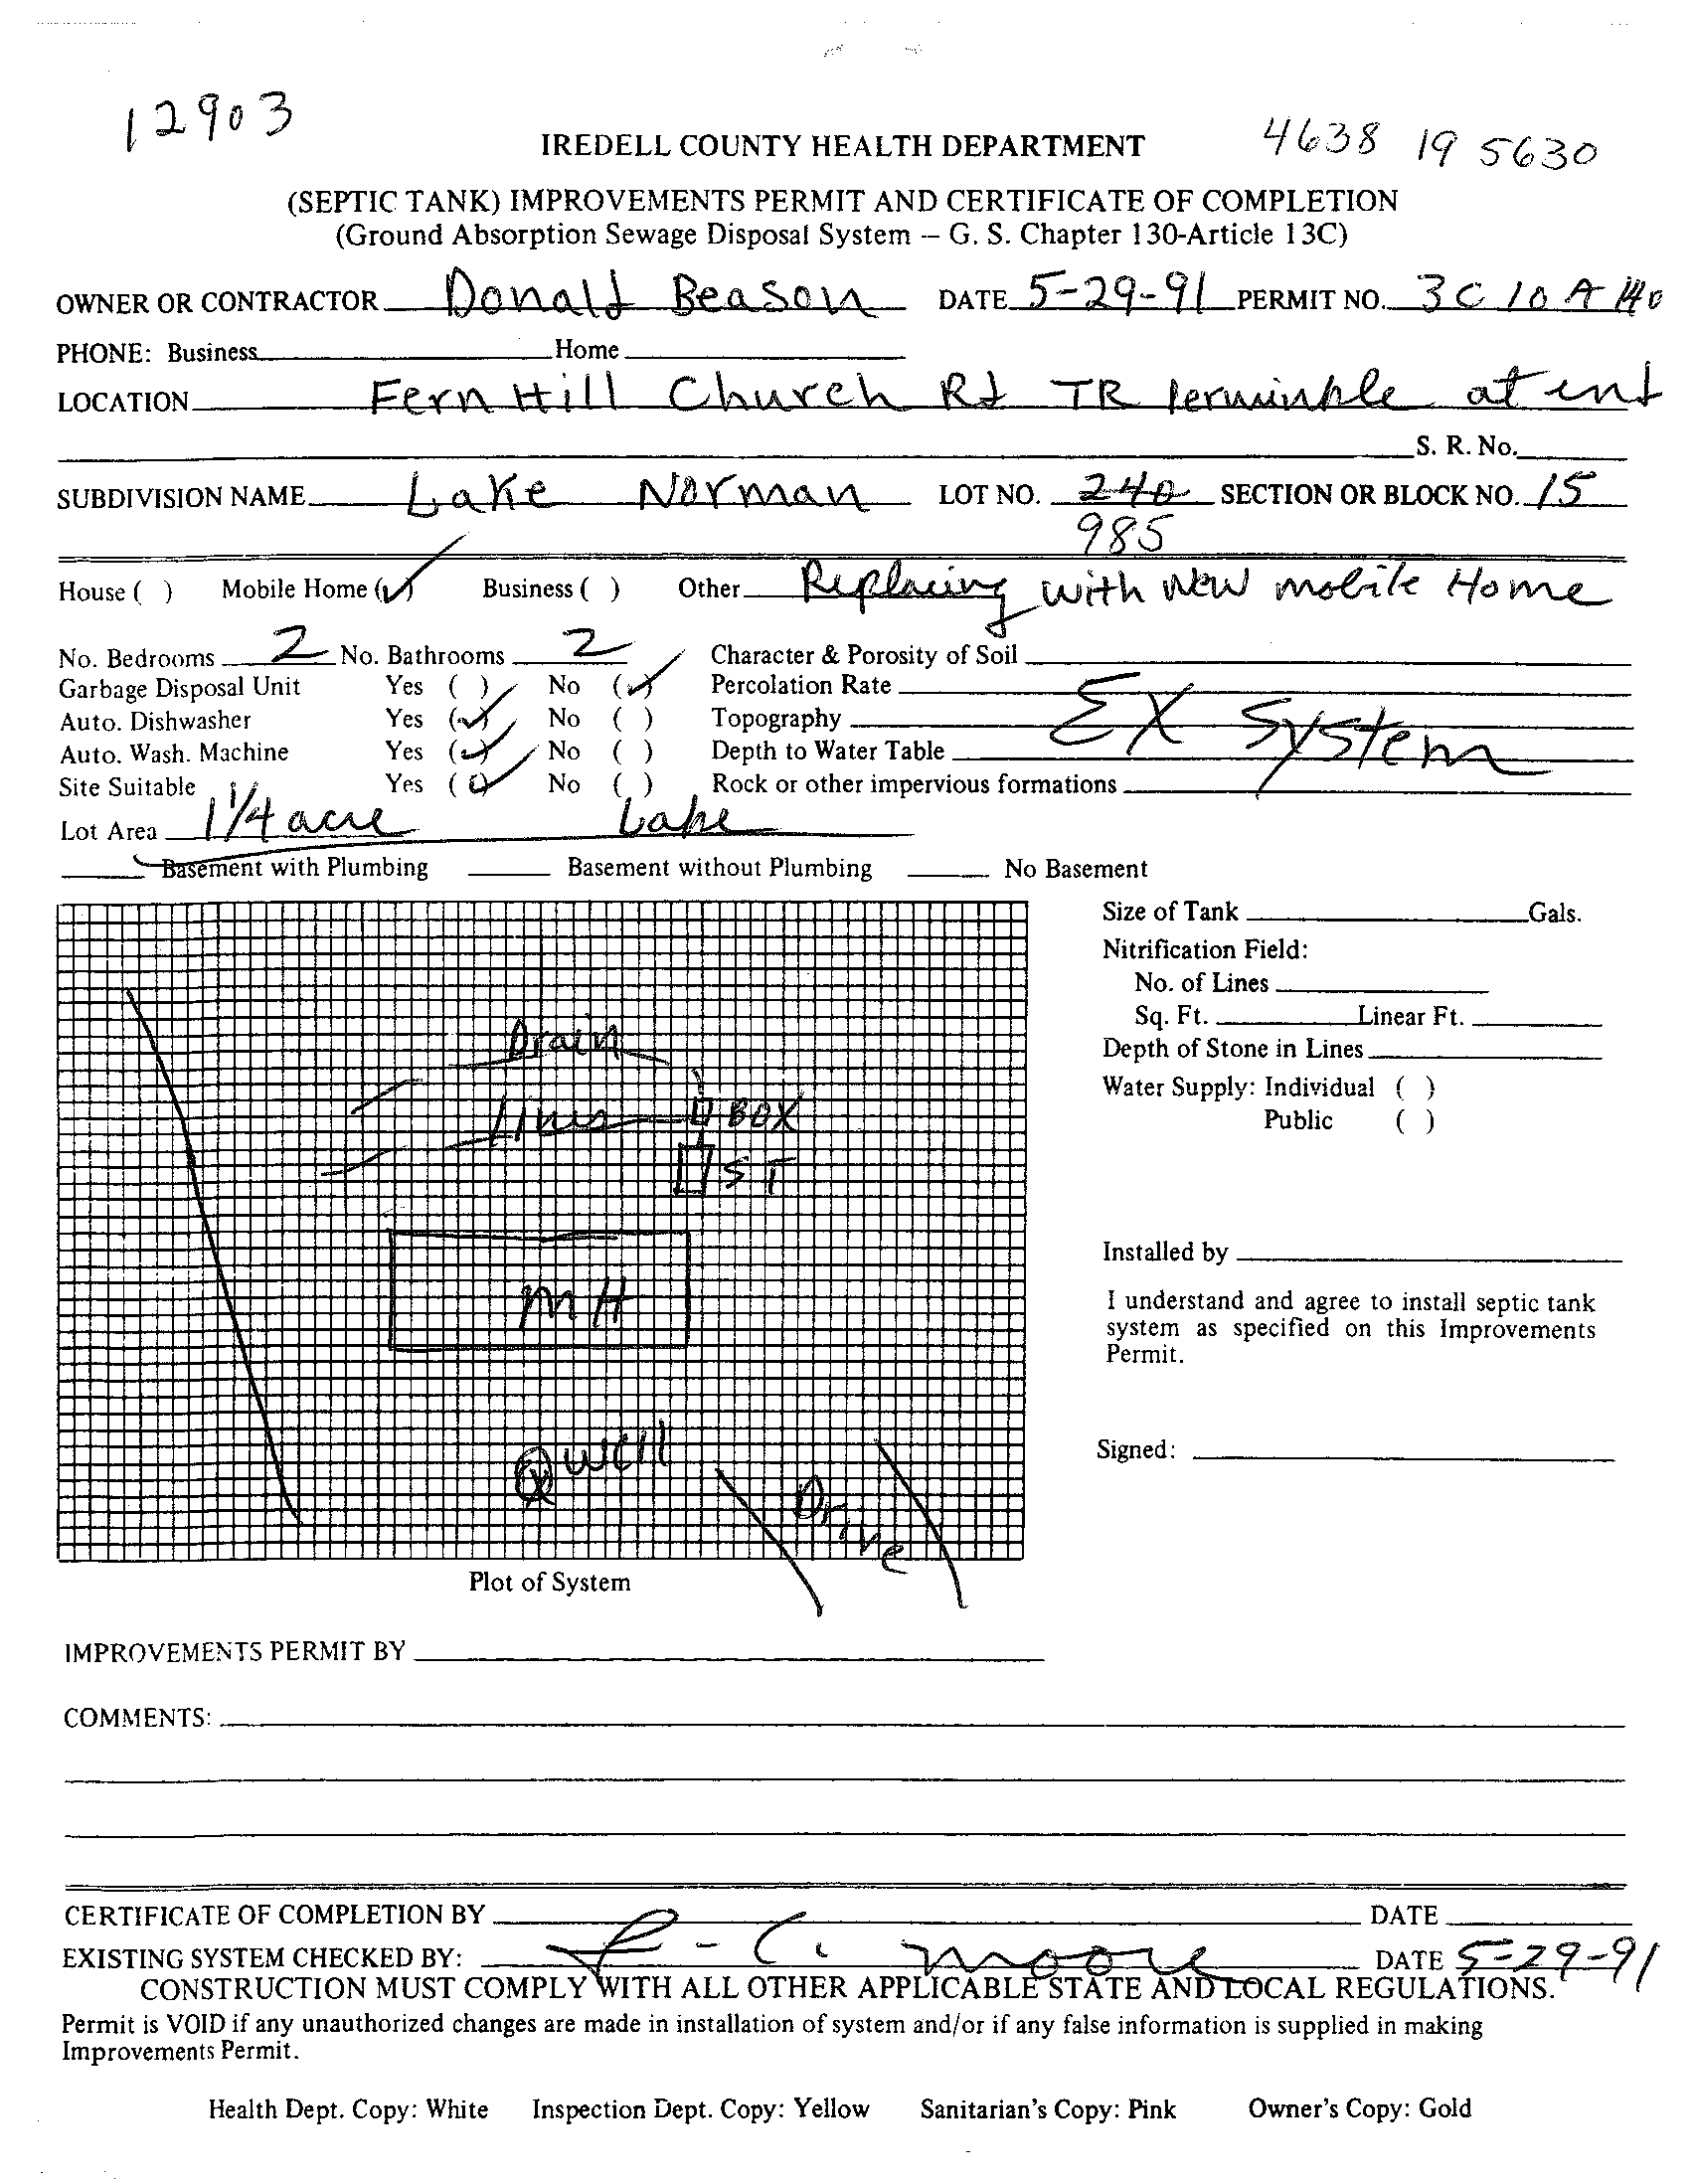 12903
4638 19 5630
IREDELL COUNTY HEALTH DEPARTMENT
(SEPTIC TANK) IMPROVEMENTS PERMIT AND CERTIFICATE OF COMPLETION
(Ground Absorption Sewage Disposal System – G. S. Chapter 130-Article 13C)
OWNER OR CONTRACTOR Donald Beason DATE 5-29-91 PERMIT NO. 3C 10 A
PHONE: Business Home
LOCATION Fern Hill Church Rd TR at end
S. R. No.
SUBDIVISION NAME Lake Norman LOT NO. 240 SECTION OR BLOCK NO. 15
985
House ( ) Mobile Home (✓) Business ( ) Other Replacing with New mobile Home
No. Bedrooms 2 No. Bathrooms 2 Character & Porosity of Soil
Garbage Disposal Unit Yes ( ) No (✓) Percolation Rate
Auto. Dishwasher Yes (✓) No ( ) Topography EX System
Auto. Wash. Machine Yes (✓) No ( ) Depth to Water Table
Site Suitable Yes (✓) No ( ) Rock or other impervious formations
Lot Area 1 1/4 acre Lake
Basement with Plumbing Basement without Plumbing No Basement
Size of Tank Gals.
Nitrification Field:
No. of Lines
Sq. Ft. Linear Ft.
Depth of Stone in Lines
Water Supply: Individual ( )
Public ( )
Drain
Lines BOX
ST
MH
Well
Drive
Installed by
I understand and agree to install septic tank
system as specified on this Improvements
Permit.
Signed:
Plot of System
IMPROVEMENTS PERMIT BY
COMMENTS:
CERTIFICATE OF COMPLETION BY DATE
EXISTING SYSTEM CHECKED BY: R. C. Moore DATE 5-29-91
CONSTRUCTION MUST COMPLY WITH ALL OTHER APPLICABLE STATE AND LOCAL REGULATIONS.
Permit is VOID if any unauthorized changes are made in installation of system and/or if any false information is supplied in making
Improvements Permit.
Health Dept. Copy: White Inspection Dept. Copy: Yellow Sanitarian's Copy: Pink Owner's Copy: Gold